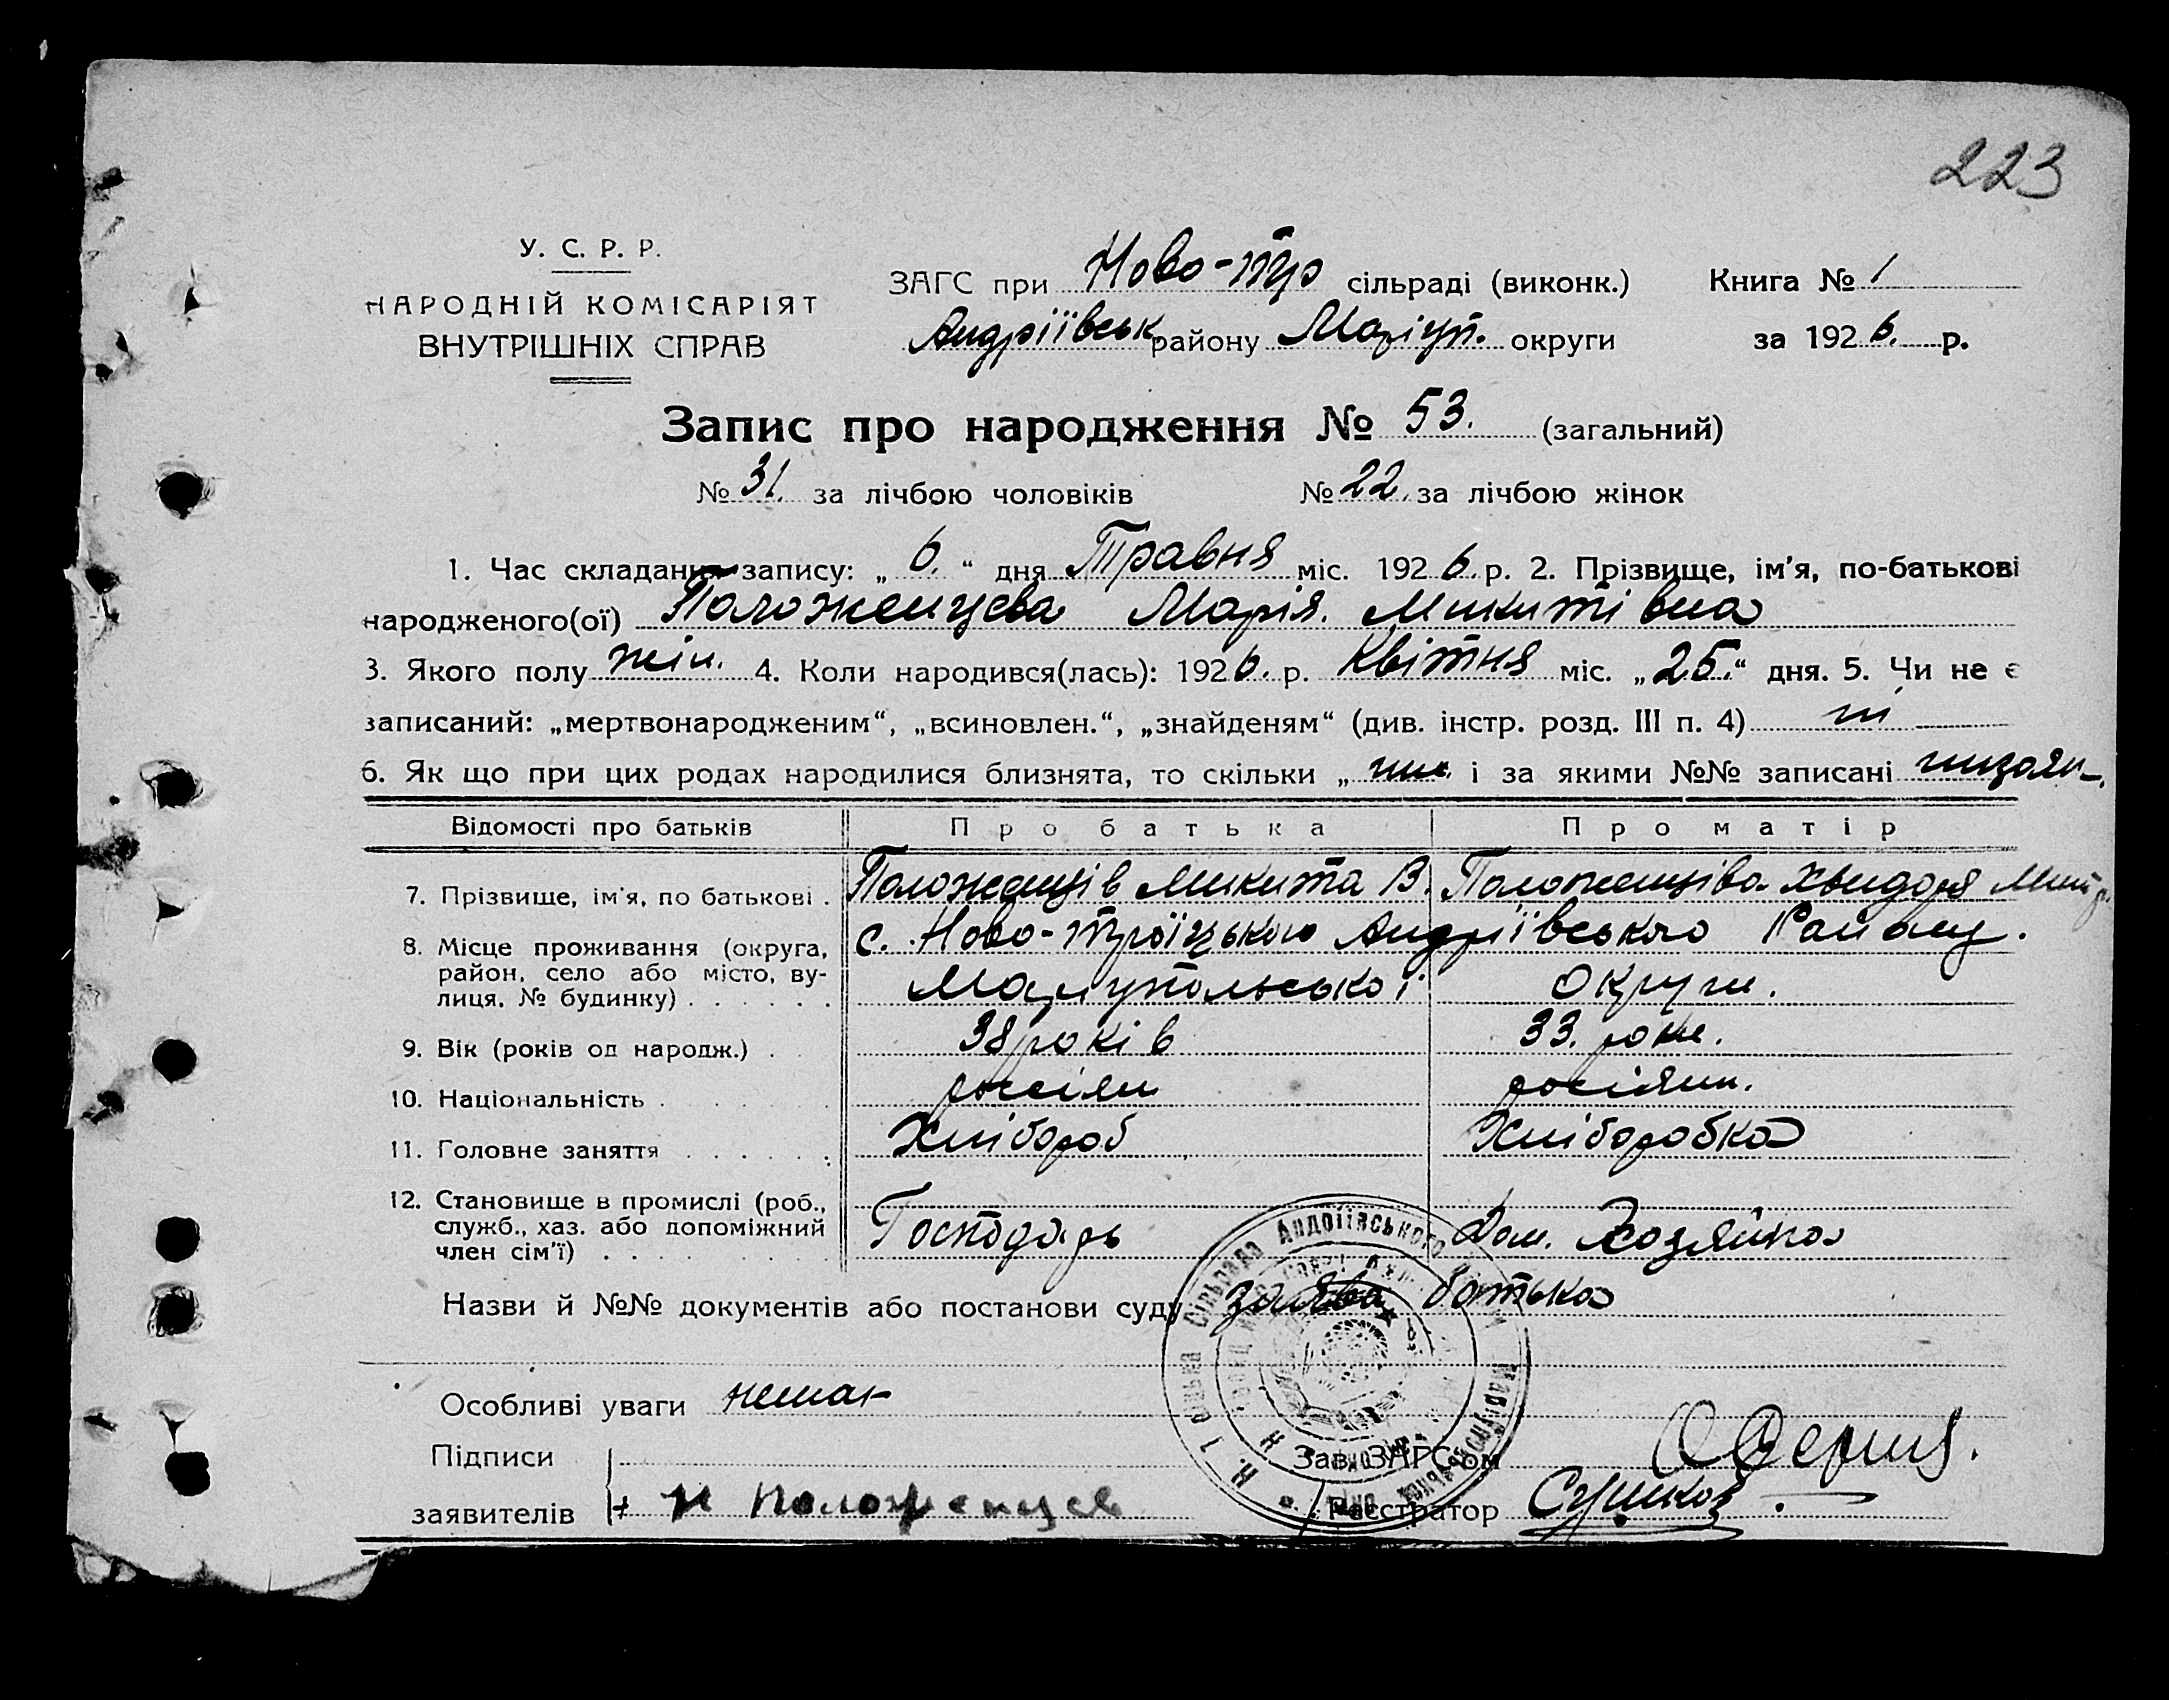 223
У. С. Р. Р.
НАРОДНІЙ КОМІСАРІЯТ
ВНУТРІШНІХ СПРАВ
ЗАГС при Ново-тро сільраді (виконк.) Книга № 1
Андріївськ району Маріуп. округи за 1926. р.
Запис про народження № 53. (загальний)
№ 31. за лічбою чоловіків № 22. за лічбою жінок
1. Час складання запису: „ 6. “ дня Травня міс. 1926. р. 2. Прізвище, ім’я, по-батькові
народженого(ої) Положенцева Марія. Микитівна
3. Якого полу жін. 4. Коли народився(лась): 1926. р. Квітня міс. „25.“ дня. 5. Чи не є
записаний: „мертвонародженим“, „всиновлен.“, „знайденям“ (див. інстр. розд. III п. 4) ні
6. Як що при цих родах народилися близнята, то скільки „ і за якими №№ записані
Відомості про батьків Про батька Про матір
7. Прізвище, ім’я, по батькові . Положенців Микита В. Положенціва Хведора Митр.
8. Місце проживання (округа, с. Ново-Троїцького Андріївського Району.
район, село або місто, ву-
лиця, № будинку) . . . . . . Маріупольської округи.
9. Вік (років од народж.) . 38 років 33. роки.
10. Національність . росіян росіян.
11. Головне заняття . . . . . . Хлібороб Хліборобка
12. Становище в промислі (роб.,
служб., хаз. або допоміжний Господарь Дом. Хозяйка
член сім’ї) . . . .
Назви й №№ документів або постанови суду заява батька
Особливі уваги немає
Підписи Зав. ЗАГС’ом
заявителів Н Положенцев Реєстратор Сушков.